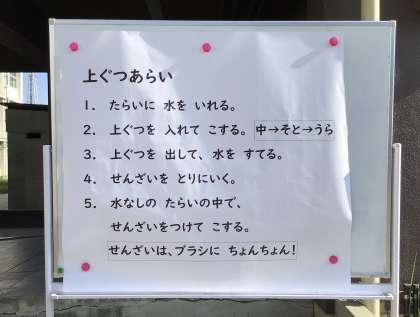 上ぐつあらい
1. たらいに 水を いれる。
2. 上ぐつを 入れて こする。 中→そと→うら
3. 上ぐつを 出して、水を すてる。
4. せんざいを とりにいく。
5. 水なしの たらいの中で、
せんざいをつけて こする。
せんざいは、ブラシに ちょんちょん!